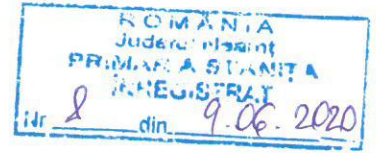 ROMANIA
Judetul Neamt
PRIMARIA STANITA
INREGISTRAT
Nr 8 din 9.06.2020